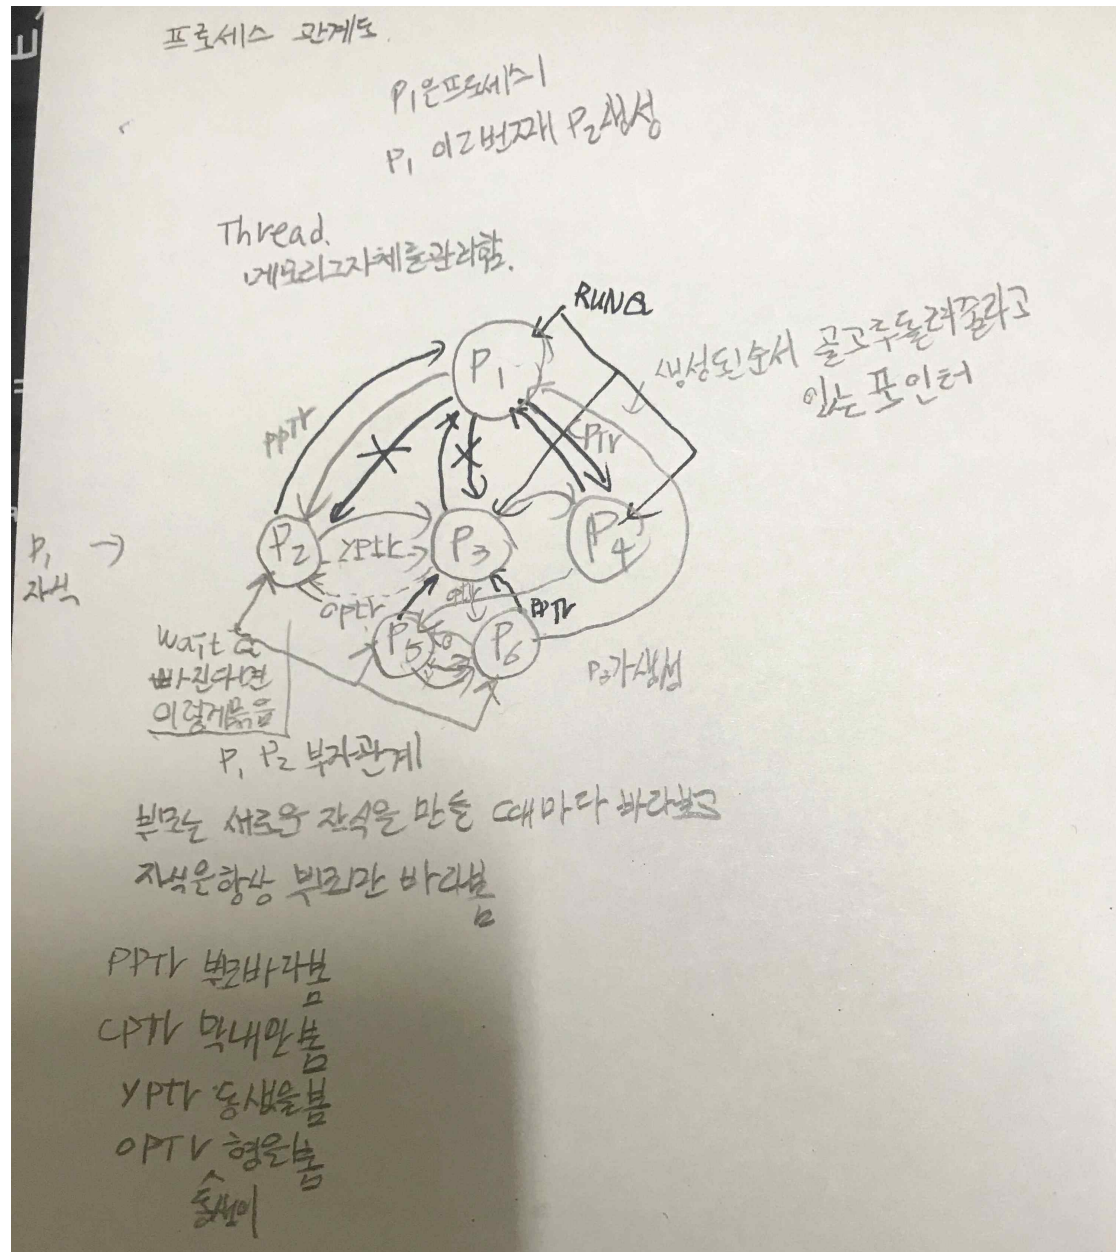 프로세스 관계도.
P1은프로세스1
P1 이 2번째 P2생성
Thread.
메모리그자체를관리함.
RUNQ
생성된순서 골고루돌려줄라고
있는 포인터
P1
PPTr
CPTr
P1 →
자식
P2
YPtr
P3
P4
OPtr
PPTr
P5
P6
Wait Q
빠진다면
이렇게묶음
P3가생성
P1 P2 부자관계
부모는 새로운 자식을 만들 때마다 바라보고
자식은항상 부모만 바라봄
PPTr 부모바라봄
CPTr 막내만봄
YPtr 동생을봄
OPTr 형을봄
동생이